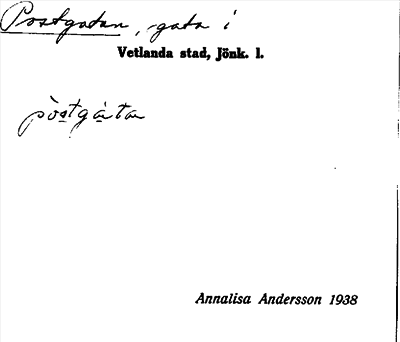 Postgatan, gata i
Vetlanda stad, Jönk. l.
pòstgàtan
Annalisa Andersson 1938